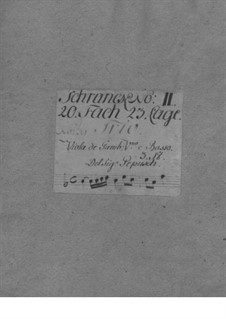 Schranck No: II.
20. Fach 23. Lage.
Viola da Gamb. Vno e Basso
Del Sig. Pepusch